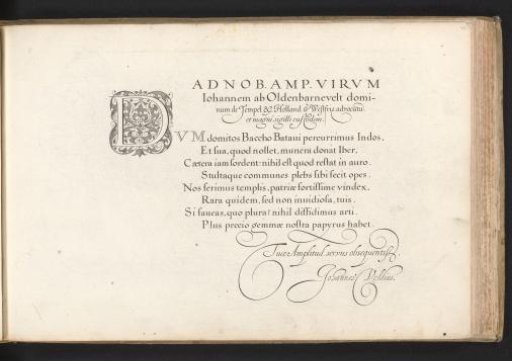 AD NOB. AMP. VIRVM
Iohannem ab Oldenbarnevelt domi-
num de Tempel &c Holland. & Westfris. advocatū
et magni sigilli custodem.
DVM domitos Baccho Batavi percurrimus Indos,
Et sua, quod nollet, munera donat Iber,
Cætera iam sordent: nihil est quod restat in auro.
Stultaque communes plebs sibi fecit opes.
Nos ferimus templis, patriæ fortissime vindex,
Rara quidem, sed non invidiosa, tuis.
Si faveas, quo plura? nihil diffidimus arti.
Plus precio gemmæ nostra papyrus habet
Tuæ Amplitud. servus obsequentiss.
Johannes Veldius.